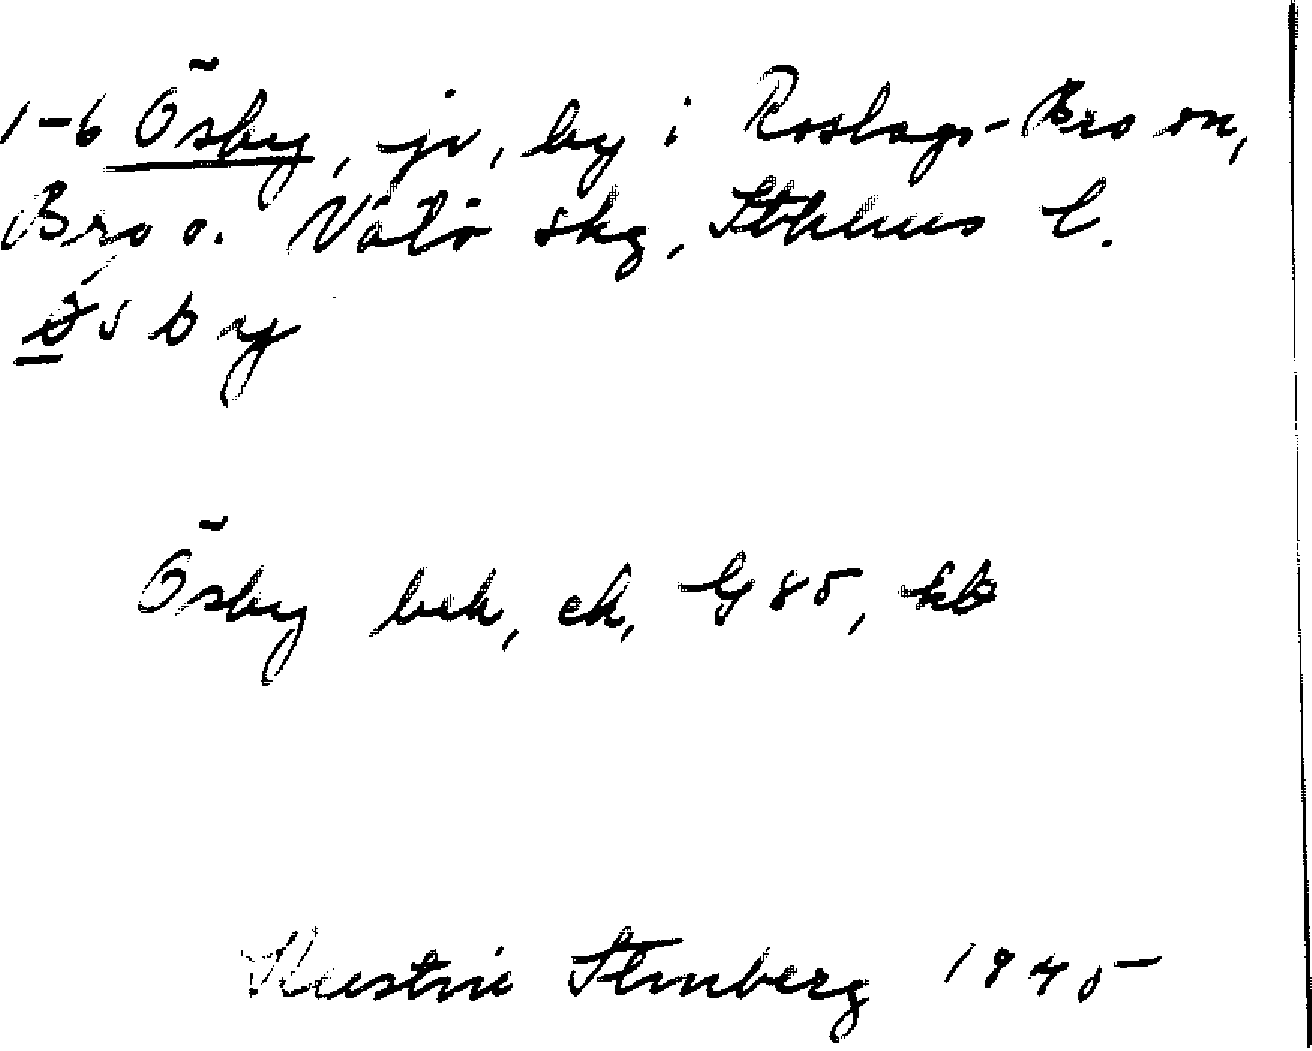 1-6 Ösby, jv, by i Roslags-Bro sn,
Bro o. Välö skg, Sthlms l.
ösby
Ösby bek, ek, G 85, kb
Kerstin Stenberg 1945